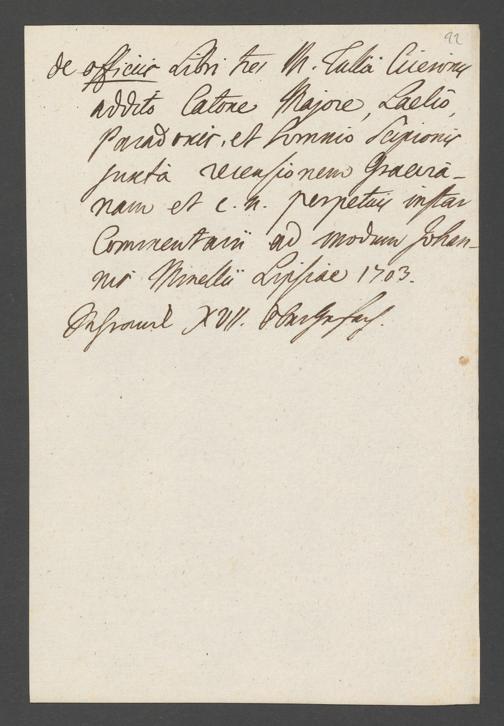 92
de officiis Libri tres M. Tullii Ciceronis
addito Catone Majore, Laelio,
Paradoxis, et Somnio Scipionis
juxta recensionem Graevia-
nam et c. n. perpetuis instar
Commentarii ad modum Johan-
nis Minellii Lipsiae 1703.
XVII.